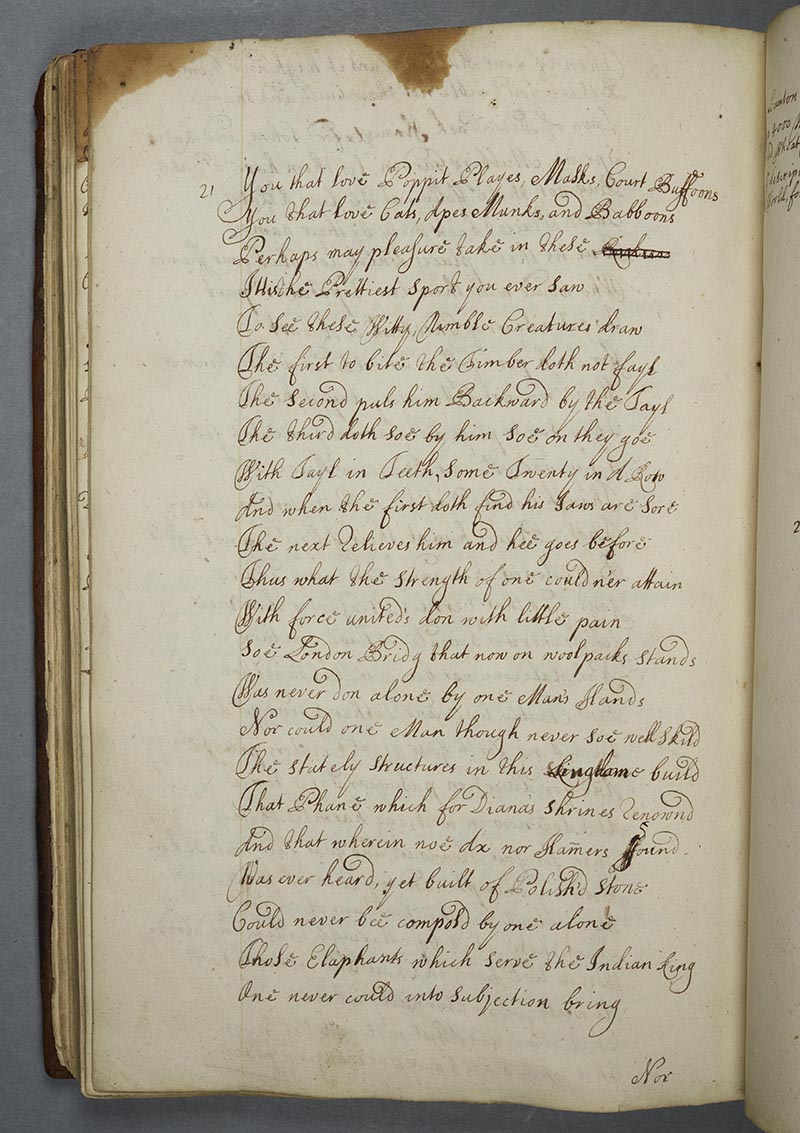 21 You that love Poppit Playes, Masks, Court Buffoons
You that love Cats, Apes Munks, and Babboons
Perhaps may pleasure take in these
Ittis the Prettiest Sport you ever saw
To See these Witty, Nimble Creatures draw
The first to bite the Timber doth not fayl
The Second puls him Backward by the Tayl
The third doth soe by him soe on they goe
With Tayl in Teeth, some Twenty in A Row
And when the first doth find his Jaws are Sore
The next Relieves him and hee goes before
Thus what the strength of one could ne'r attain
With force united's don with little pain
Soe London Bridg that now on woolpacks stands
Was never don alone by one Man's Hands
Nor could one Man though never soe well Skild
The stately structures in this Kingdame build
That Phane which for Diana's shrines Renownd
And that wherein noe Ax nor Ham̄ers Sound
Was ever heard, yet built of Polish'd stone
Could never bee composd by one alone
Those Elaphants which serve the Indian King
One never could into Subjection bring
Nor